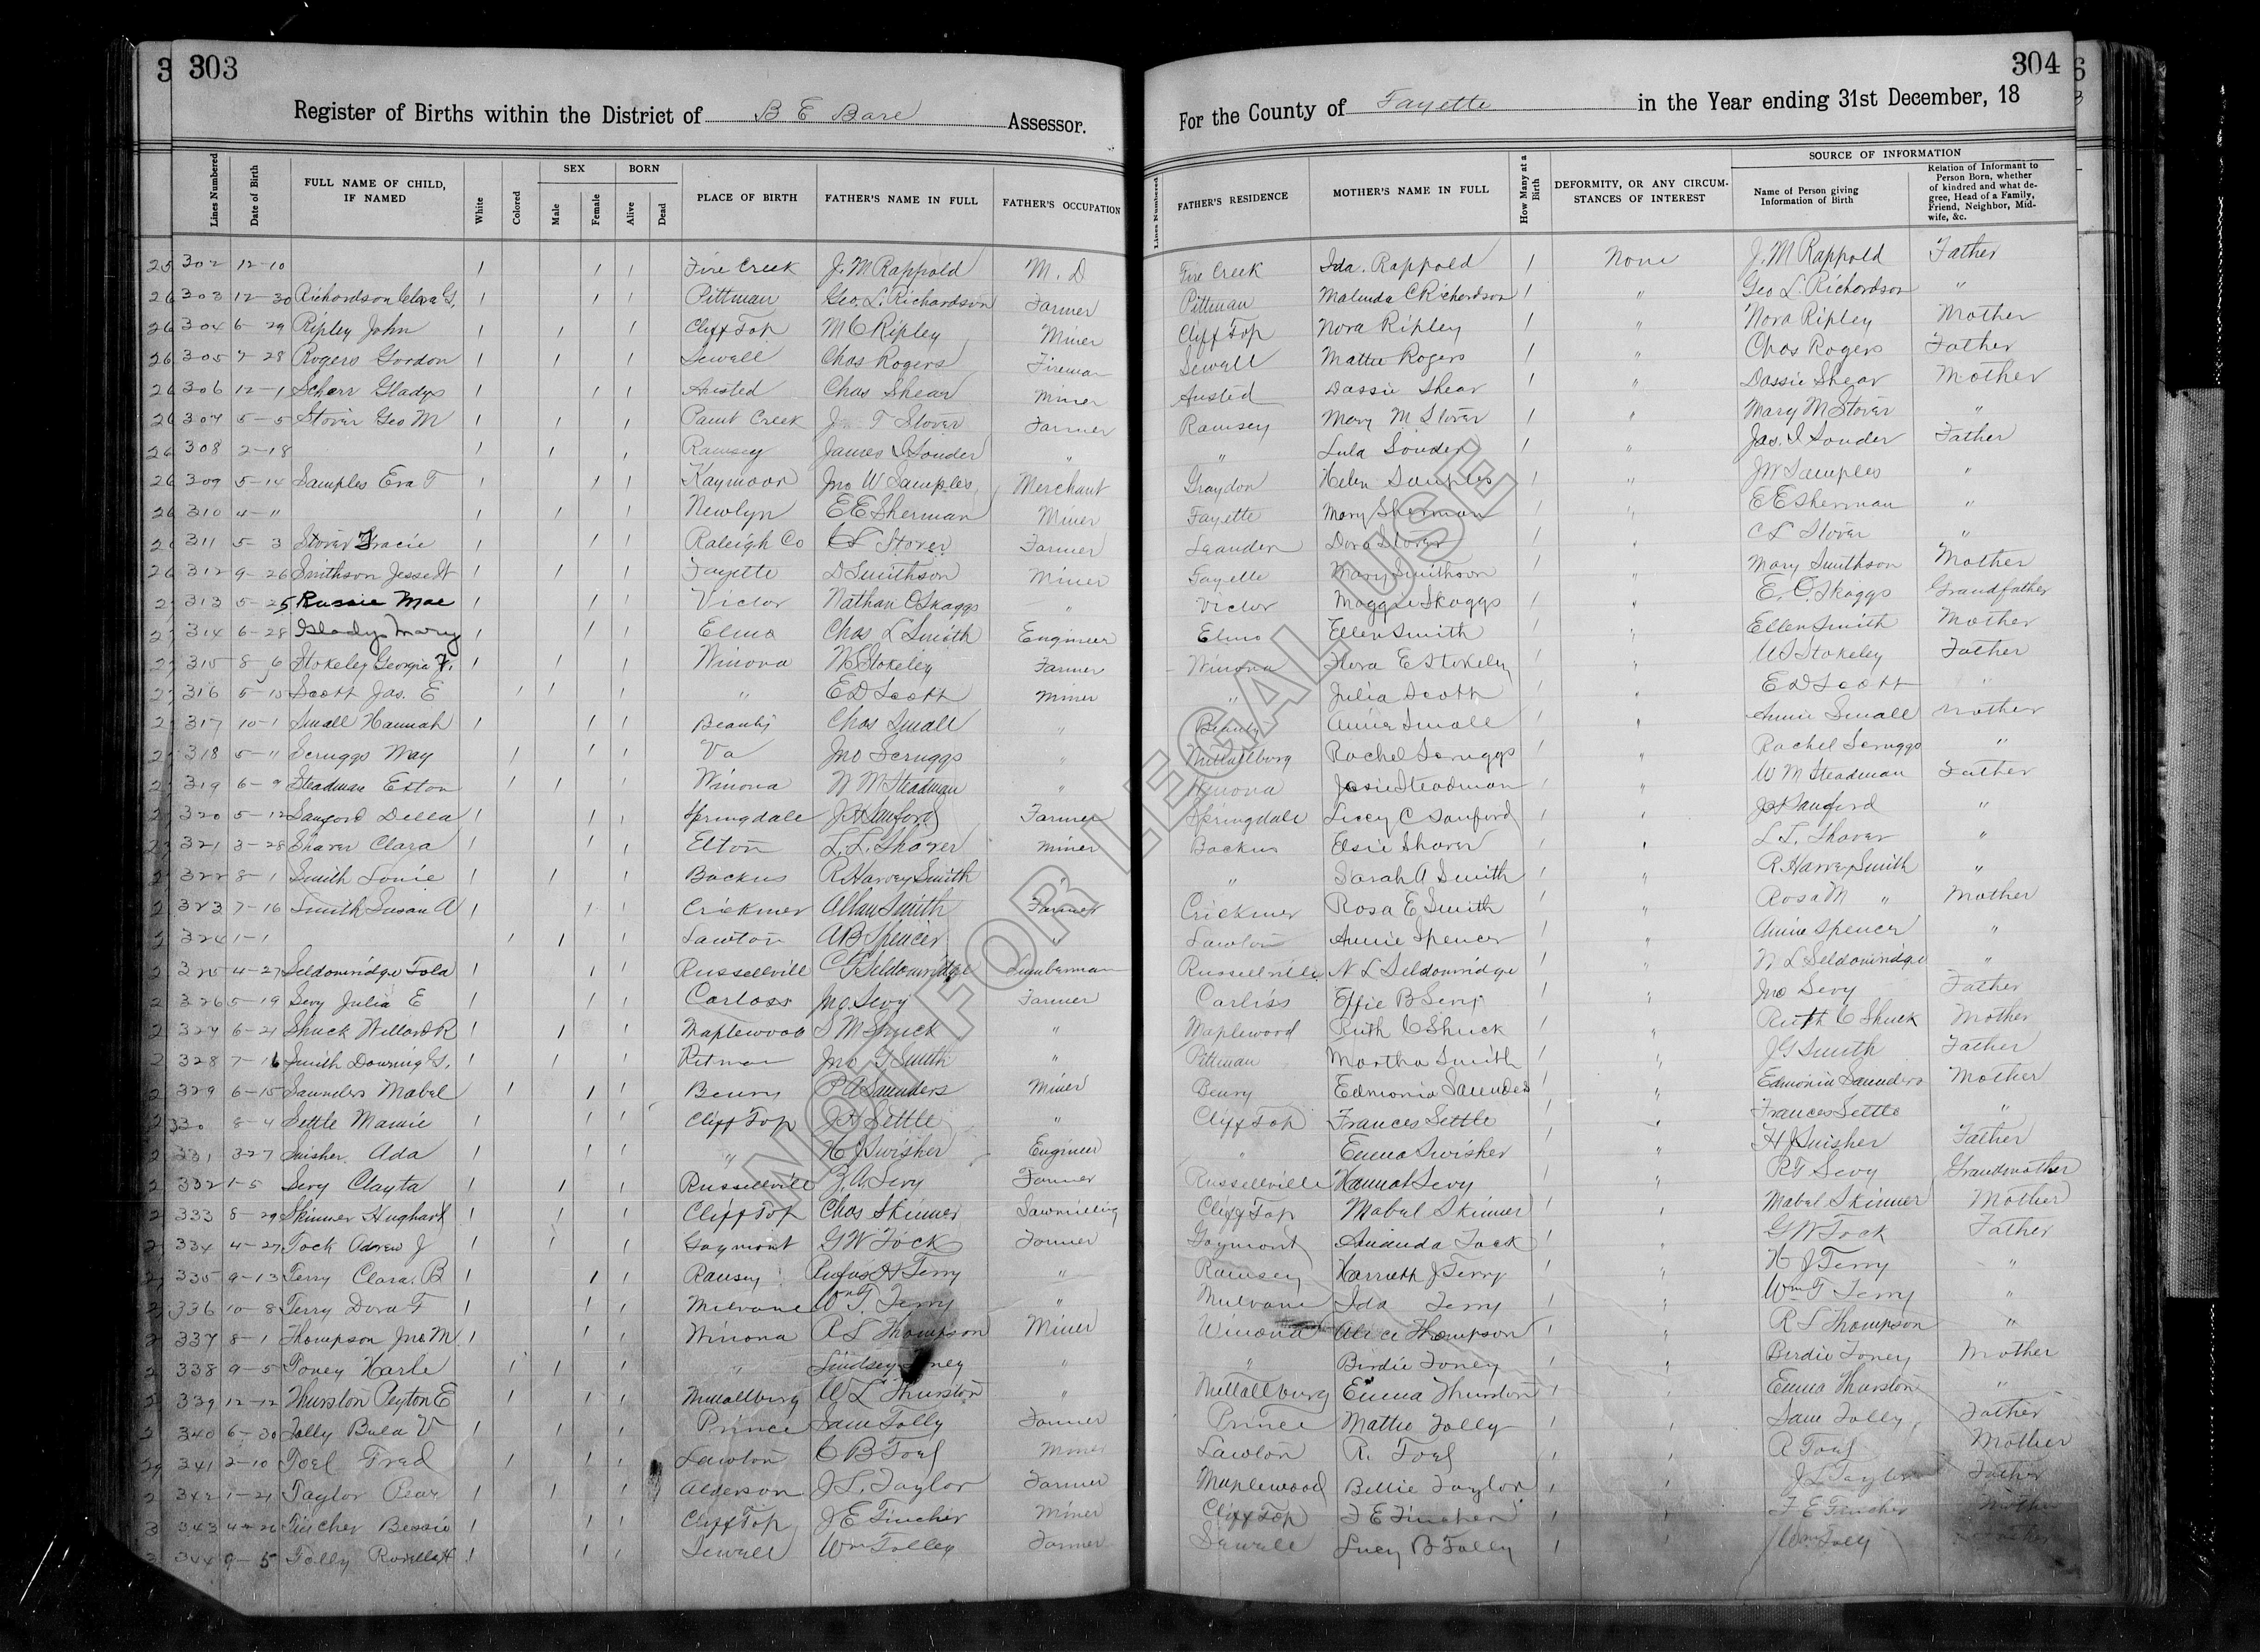 3 303
Register of Births within the District of B E Bare Assessor.
Lines Numbered
Date of Birth
FULL NAME OF CHILD, IF NAMED
White
Colored
SEX
Male
Female
BORN
Alive
Dead
PLACE OF BIRTH
FATHER'S NAME IN FULL
FATHER'S OCCUPATION
304
For the County of Fayette in the Year ending 31st December, 18
Lines Numbered
FATHER'S RESIDENCE
MOTHER'S NAME IN FULL
How Many at a Birth
DEFORMITY, OR ANY CIRCUMSTANCES OF INTEREST
SOURCE OF INFORMATION
Name of Person giving Information of Birth
Relation of Informant to Person Born, whether of kindred and what degree, Head of a Family, Friend, Neighbor, Midwife, &c.
302 12-10 1 1 1 Fire Creek J. M Rappold M. D Fire Creek Ida. Rappold 1 None J. M Rappold Father
303 12-30 Richardson G. 1 1 1 Pittman Geo. L. Richardson Farmer Pittman Malinda C Richardson 1 " Geo L. Richardson "
304 6-29 Ripley John 1 1 1 Cliff Top M C Ripley Miner Cliff Top Nora Ripley 1 " Nora Ripley Mother
305 7-28 Rogers Gordon 1 1 1 Sewell Chas Rogers Fireman Sewell Mattie Rogers 1 " Chas Rogers Father
306 12-1 Scherr Gladys 1 1 1 Ansted Chas Shear Miner Ansted Dassie Shear 1 " Dassie Shear Mother
307 5-5 Stover Geo M 1 1 1 Paint Creek J T Stover Farmer Ramsey Mary M Stover 1 " Mary M Stover "
308 2-18 1 1 1 Ramsey James I Souder " " Lula Souder 1 " Jas. I Souder Father
309 5-14 Samples Eva T 1 1 1 Kaymoor Jno W Samples Merchant Graydon Helen Samples 1 " J W Samples "
310 4-11 1 1 1 Newlyn E E Sherman Miner Fayette Mary Sherman 1 " E E Sherman "
311 5-3 Stover Gracie 1 1 1 Raleigh Co C L Stover Farmer Leander Dora Stover 1 " C L Stover "
312 9-26 Smithson Jesse 1 1 1 Fayette D Smithson Miner Fayette Mary Smithson 1 " Mary Smithson Mother
313 5-25 Russie Mae 1 1 1 Victor Nathan O Skaggs " Victor Maggie Skaggs 1 " E. O. Skaggs Grandfather
314 6-28 Gladys Mary 1 1 1 Elmo Chas L Smith Engineer Elmo Ellen Smith 1 " Ellen Smith Mother
315 8-6 Stokeley Georgia 1 1 1 Winona Stokeley Farmer Winona Flora E Stokeley 1 " Stokeley Father
316 5-15 Scott Jas. E 1 1 1 " E D Scott Miner " Julia Scott 1 " E D Scott "
317 10-1 Small Hannah 1 1 1 Beauty Chas Small " Beauty Annie Small 1 " Annie Small Mother
318 5-11 Scruggs May 1 1 1 Va Jno Scruggs " Nuttallburg Rachel Scruggs 1 " Rachel Scruggs "
319 6-9 Steadman Exton 1 1 1 Winona W M Steadman " Winona Josie Steadman 1 " W M Steadman Father
320 5-12 Sanford Della 1 1 1 Springdale J H Sanford Farmer Springdale C Sanford 1 " J H Sanford "
321 3-28 Shaver Clara 1 1 1 Elton L. L. Shaver Miner Backus Elsie Shaver 1 " L. L. Shaver "
322 8-1 Smith Louie 1 1 1 Backus R Harvey Smith " " Sarah A Smith 1 " R Harvey Smith "
323 7-16 Smith Susan A 1 1 1 Crickmer Allan Smith Farmer Crickmer Rosa E Smith 1 " Rosa M " Mother
324 1-1 1 1 1 Lawton A B Spencer " Lawton Annie Spencer 1 " Annie Spencer "
325 4-27 Seldomridge Tola 1 1 1 Russellville Seldomridge Lumberman Russellville N L Seldomridge 1 " N L Seldomridge "
326 5-19 Sevy Julia E 1 1 1 Carloss Jno. Sevy Farmer Carliss Effie B Sevy 1 " Jno Sevy Father
327 6-21 Shuck Willard R 1 1 1 Maplewood S M Shuck " Maplewood Ruth C Shuck 1 " Ruth C Shuck Mother
328 7-16 Smith Downing G. 1 1 1 Pitman Jno G Smith " Pittman Martha Smith 1 " J G Smith Father
329 6-15 Saunders Mabel 1 1 1 Beury P A Saunders Miner Beury Edmonia Saunders 1 " Edmonia Saunders Mother
330 8-4 Settle Mamie 1 1 1 Cliff Top J H Settle " Cliff Top Frances Settle 1 " Frances Settle "
331 3-27 Swisher Ada 1 1 1 " H J Swisher Engineer " Emma Swisher 1 " H J Swisher Father
332 1-5 Sevy Clayta 1 1 1 Russellville Z A Sevy Farmer Russellville Hannah Sevy 1 " Sevy Grandmother
333 8-29 Skinner Hughart 1 1 1 Cliff Top Chas Skinner Sawmilling Cliff Top Mabel Skinner 1 " Mabel Skinner Mother
334 4-27 Tock J 1 1 1 Gaymont G W Tock Farmer Gaymont Amanda Tock 1 " G W Tock Father
335 9-13 Terry Clara. B 1 1 1 Ramsey Rufus H Terry " Ramsey J Terry 1 " H J Terry "
336 10-8 Terry Dora F 1 1 1 Milvane T. Terry " Mulvane Ida Terry 1 " Wm T Terry "
337 8-1 Thompson Jno M 1 1 1 Winona R L Thompson Miner Winona Alice Thompson 1 " R L Thompson "
338 9-5 Toney Harle 1 1 1 " Lindsey Toney " " Birdie Toney 1 " Birdie Toney Mother
339 12-12 Thurston Peyton E 1 1 1 Nuttallburg W L Thurston " Nuttallburg Emma Thurston 1 " Emma Thurston "
340 6-30 Tolly Bula V 1 1 1 Prince Sam Tolly Farmer Prince Mattie Tolly 1 " Sam Tolly Father
341 2-10 Toel Fred 1 1 1 Lawton C B Toel Miner Lawton R. Toel 1 " R Toel Mother
342 1-21 Taylor 1 1 1 Alderson J. L. Taylor Farmer Maplewood Bettie Taylor 1 " J L Taylor Father
343 4-26 Tincher Bessie 1 1 1 Cliff Top J E Tincher Miner Cliff Top F E Tincher 1 " F E Tincher Mother
344 9-5 Tolly 1 1 1 Sewell Wm Tolley Farmer Sewell Lucy B Tolly 1 " Wm Tolly
NOT FOR LEGAL USE